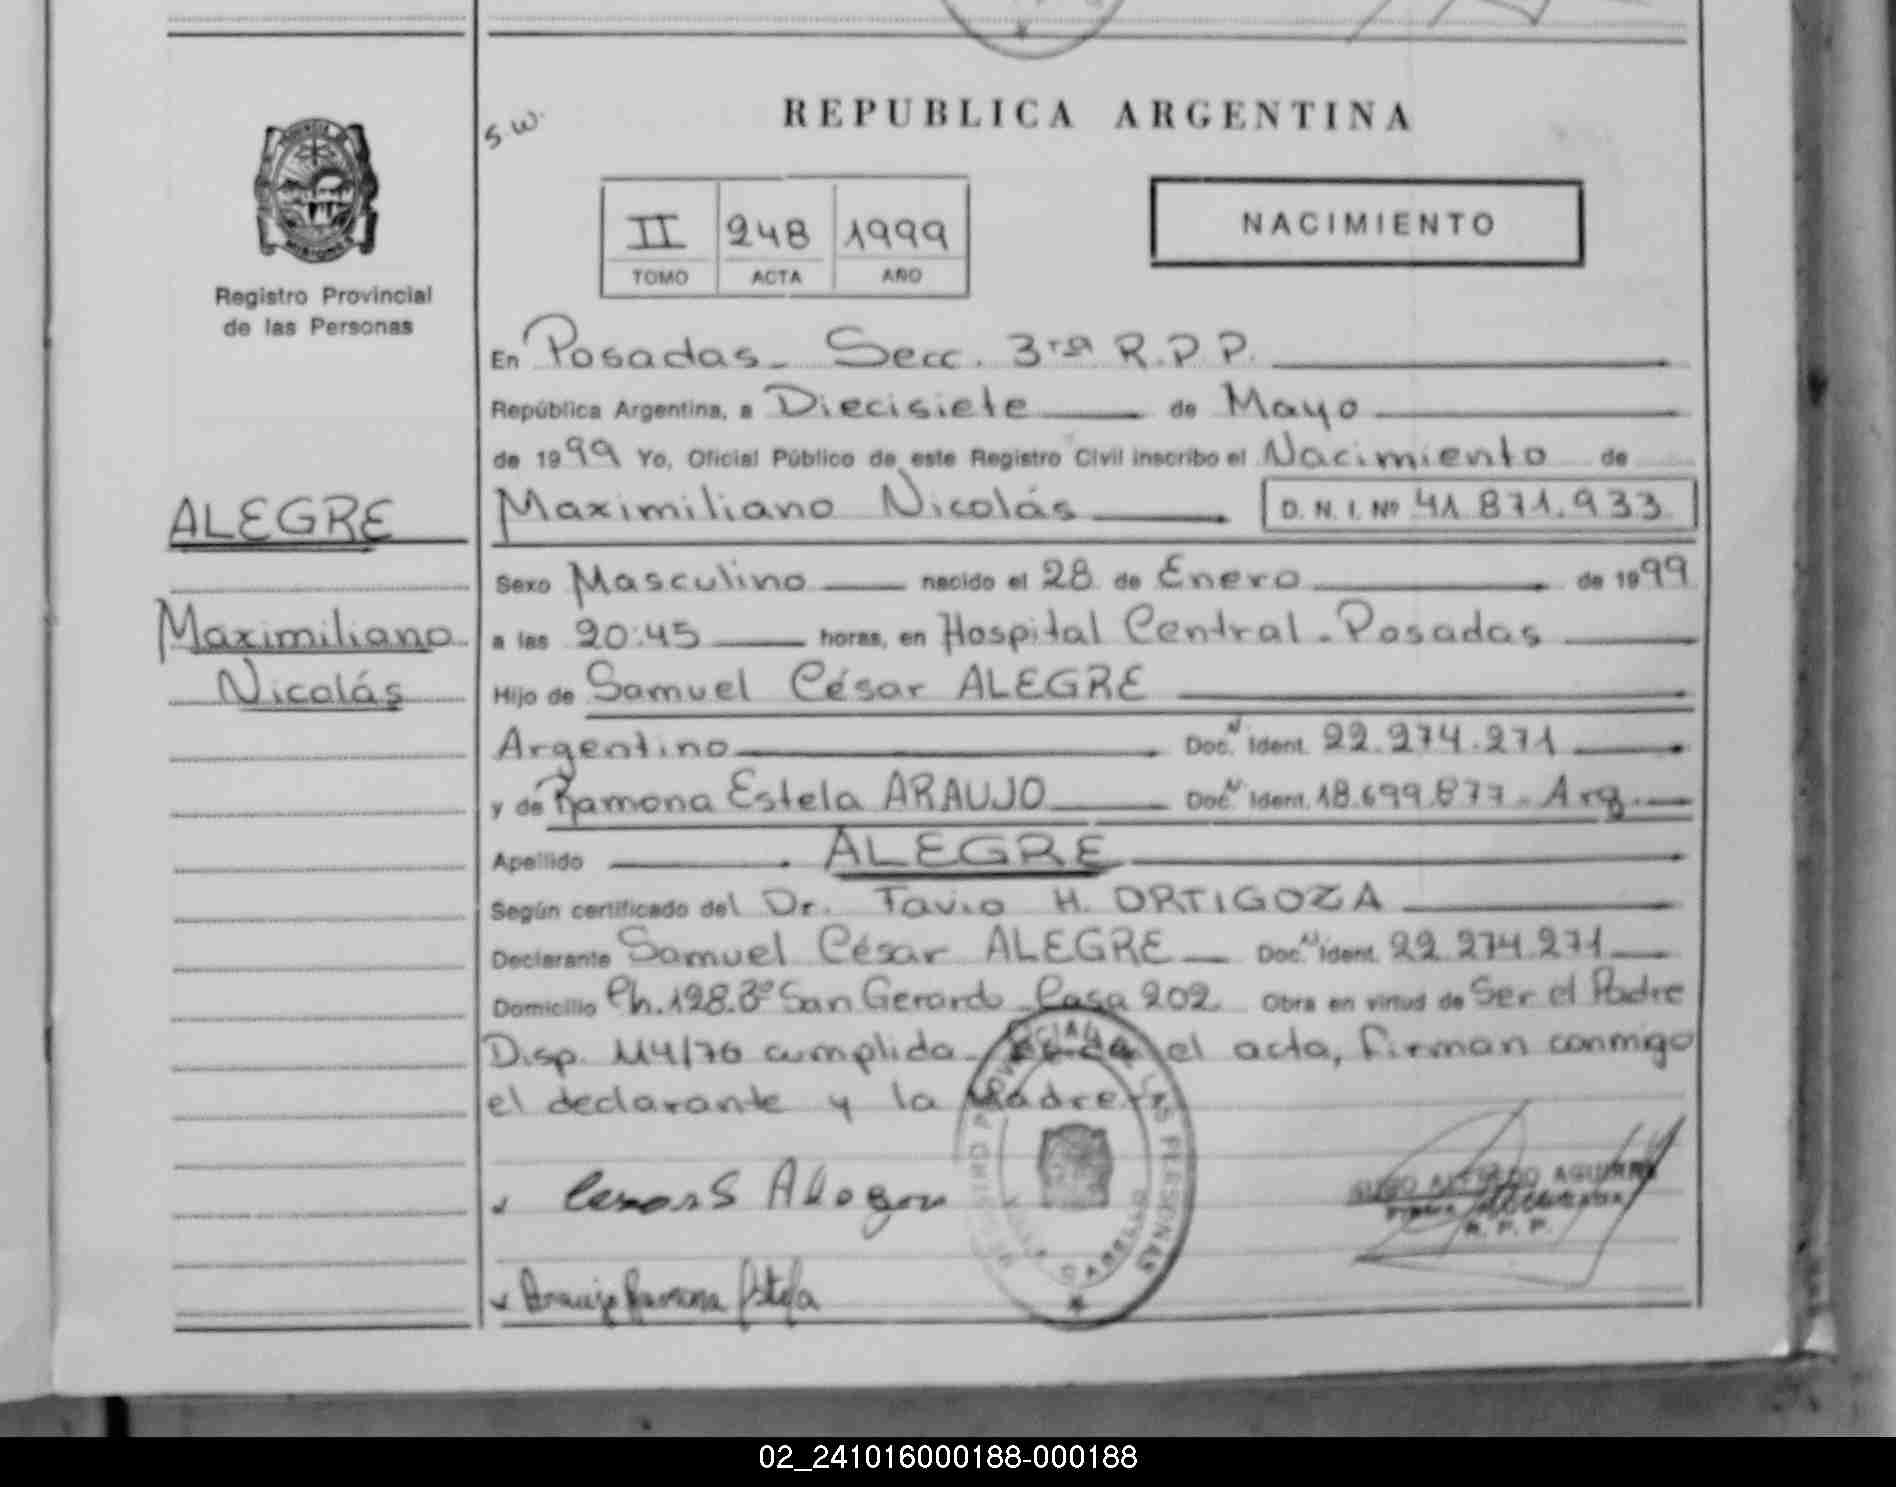 S.W.
REPUBLICA ARGENTINA
II 248 1999
TOMO ACTA AÑO
NACIMIENTO
Registro Provincial
de las Personas
En Posadas - Secc. 3ra R.P.P.
República Argentina, a Diecisiete de Mayo
de 1999 Yo, Oficial Público de este Registro Civil inscribo el Nacimiento de
ALEGRE
Maximiliano Nicolás D.N.I. Nº 41.871.933
Sexo Masculino nacido el 28 de Enero de 1999
Maximiliano
a las 20:45 horas, en Hospital Central - Posadas
Nicolás
Hijo de Samuel César ALEGRE
Argentino Doc. N Ident. 22.274.271
y de Ramona Estela ARAUJO Doc. N Ident. 18.699.877 - Arg.
Apellido ALEGRE
Según certificado del Dr. Favio H. ORTIGOZA
Declarante Samuel César ALEGRE Doc. N Ident. 22.274.271
Domicilio Ch. 128. Bº San Gerardo Casa 202. Obra en virtud de Ser el Padre
Disp. 114/76 cumplida el acta, firman conmigo
el declarante y la Madre
Araujo Ramona Estela
AGUIRRE
R. P. P.
LAS PERSONAS
02_241016000188-000188